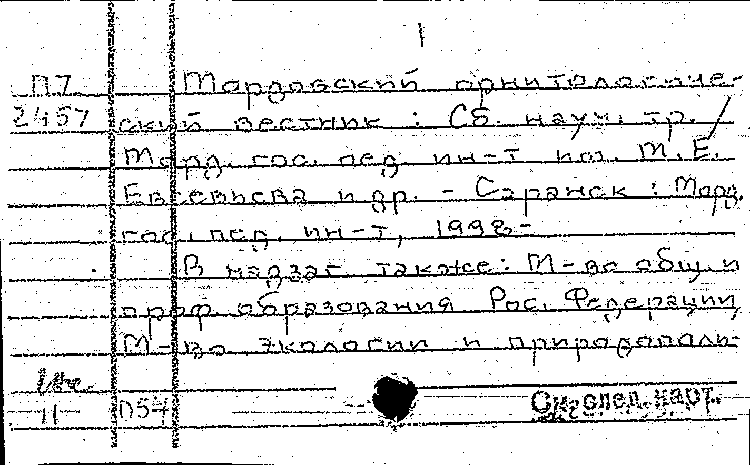 1
П7 Мордовский орнитологиче-
2457 ский вестник : Сб. науч. тр. /
Морд. гос. пед. ин-т им. М. Е.
Евсевьева и др. - Саранск : Морд.
гос. пед. ин-т, 1998-
В надзаг также: М-во общ. и
проф. образования Рос. Федерации,
М-во экологии и природополь-
11 054 См. след. карт.